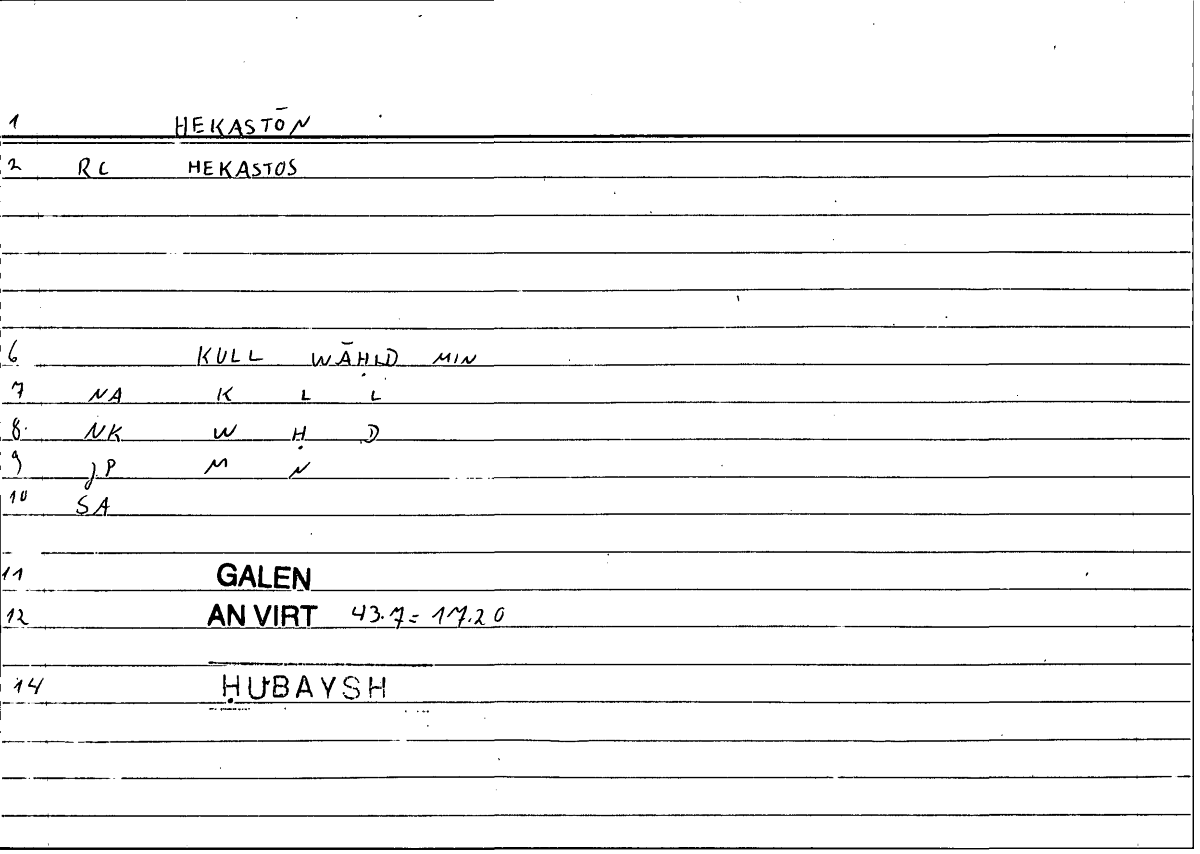 1 HEKASTŌN
2 RC HEKASTOS
6 KULL WĀḤID MIN
7 NA K L L
8. NK W Ḥ D
9 JP M N
10 SA
11 GALEN
12 AN VIRT 43.7 = 17.20
14 ḤUBAYSH